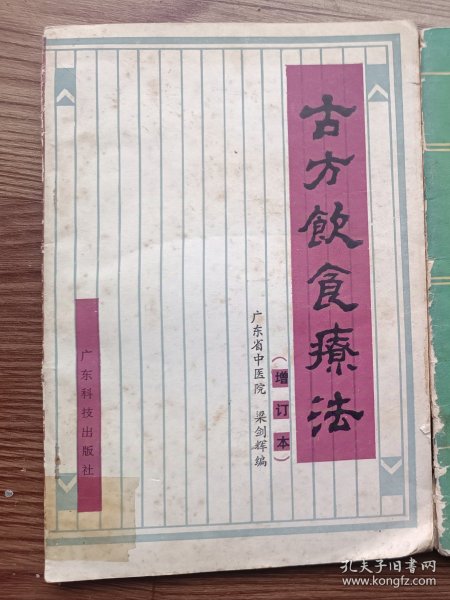 古方飲食療法
（增订本）
广东省中医院 梁剑辉编
广东科技出版社
孔夫子旧书网
www.kongfz.com